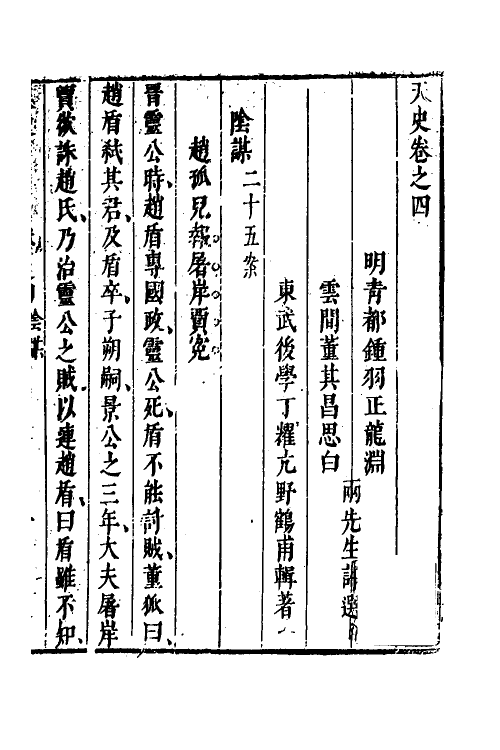 天史卷之四
明青都鍾羽正龍淵
雲間董其昌思白
兩先生
東武後學丁耀亢野鶴甫輯著
陰謀二十五案
趙孤兒報屠岸賈寃
晉靈公時趙盾專國政靈公死盾不能討賊董狐曰
趙盾弒其君及盾卒子朔嗣景公之三年大夫屠岸
賈欲誅趙氏乃治靈公之賊以連趙盾曰盾雖不知
陰謀